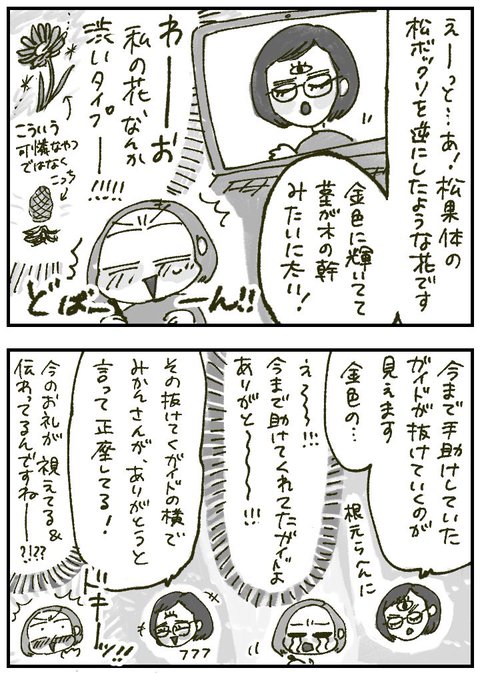 えーっと…あ！松果体の
松ボックリを逆にしたような花です
金色に輝いてて
茎が木の幹
みたいに太い！
わーーお
私の花、なんか
渋いタイプ
ーー!!!!!
こういう
可憐なやつ
ではなく
こっち
どばーーーん!!
今まで手助けしていた
ガイドが抜けていくのが
見えます
金色の…
根元らへんに
え〜〜!!!
今まで助けてくれてたガイドよ
ありがと〜〜〜!!!
その抜けてくガイドの横で
みかんさんが、ありがとうと
言って正座してる！
フフフ
今のお礼が視えてる&
伝わってるんですねーー
?!??
ドキーーッ!!